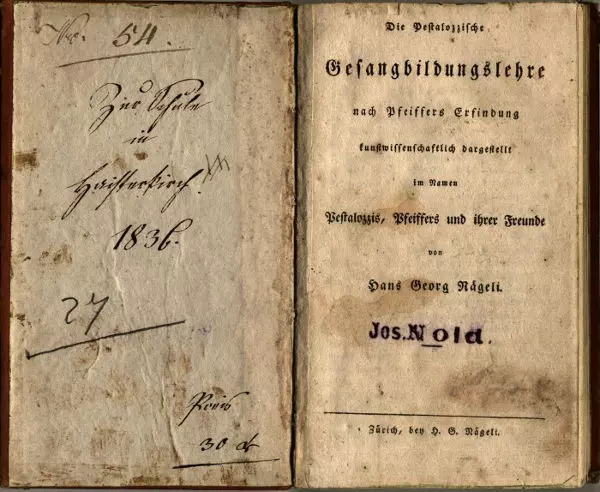 No. 54.
Zur Schule
in
Haisterkirch.
1836.
27
Preis
30 d
Die Pestalozzische
Gesangbildungslehre
nach Pfeiffers Erfindung
kunstwissenschaftlich dargestellt
im Namen
Pestalozzis, Pfeiffers und ihrer Freunde
von
Hans Georg Nägeli.
Jos. Nold.
Zürich, bey H. G. Nägeli.